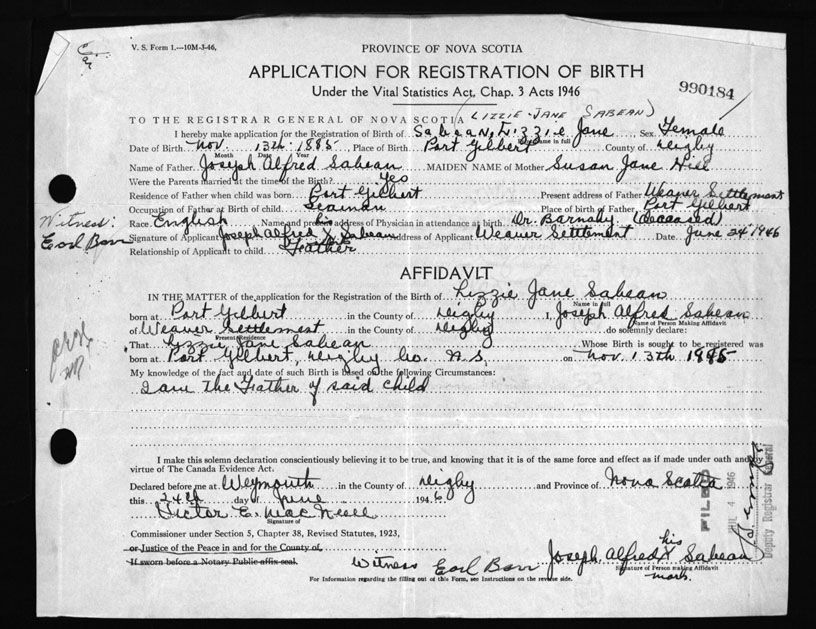 V. S. Form 1.—10M-3-46.
PROVINCE OF NOVA SCOTIA
APPLICATION FOR REGISTRATION OF BIRTH
990184
Under the Vital Statistics Act, Chap. 3 Acts 1946
(LIZZIE-JANE SABEAN)
TO THE REGISTRAR GENERAL OF NOVA SCOTIA
I hereby make application for the Registration of Birth of Sabean, Lizzie Jane, Sex Female
Name in full
Date of Birth Nov. 13th 1885, Place of Birth Port Gilbert County of Digby
Month Date Year
Name of Father Joseph Alfred Sabean MAIDEN NAME of Mother Susan Jane Hill
Were the Parents married at the time of the Birth? Yes
Residence of Father when child was born Port Gilbert Present address of Father Weaver Settlement
Occupation of Father at Birth of child Seaman Place of birth of Father Port Gilbert
Race English Name and present address of Physician in attendance at birth Dr. Barnaby (deceased)
Witness:
Earl Barr
Signature of Applicant Joseph Alfred his X Sabean Address of Applicant Weaver Settlement Date June 24 1946
Relationship of Applicant to child Father
AFFIDAVIT
IN THE MATTER of the application for the Registration of the Birth of Lizzie Jane Sabean
Name in full
born at Port Gilbert in the County of Digby I, Joseph Alfred Sabean
Name of Person Making Affidavit
of Weaver Settlement in the County of Digby do solemnly declare:
Present Residence
That Lizzie Jane Sabean Whose Birth is sought to be registered was
born at Port Gilbert, Digby Co. N.S, on Nov. 13th 1885
My knowledge of the fact and date of such Birth is based on the following Circumstances:
I am the Father of said child
I make this solemn declaration conscientiously believing it to be true, and knowing that it is of the same force and effect as if made under oath and by
virtue of The Canada Evidence Act.
Declared before me at Weymouth in the County of Digby and Province of Nova Scotia
this 24th day of June 1946
Victor E. MacNeill
Signature of
Commissioner under Section 5, Chapter 38, Revised Statutes, 1923,
or Justice of the Peace in and for the County of
If sworn before a Notary Public affix seal.
Witness Earl Barr Joseph Alfred his X Sabean
Signature of Person making Affidavit
mark
For Information regarding the filling out of this Form, see Instructions on the reverse side.
FILED
4 1946
Deputy Registrar General